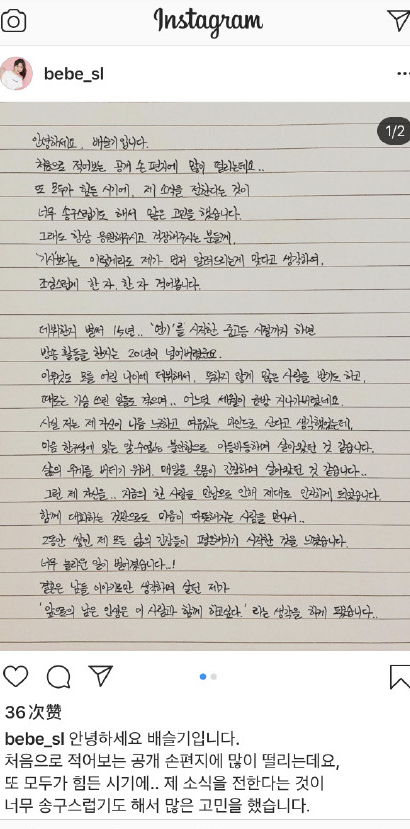 Instagram
bebe_sl
1/2
안녕하세요, 배슬기입니다.
처음으로 적어보는 공개 손 편지에 많이 떨리는데요..
또 모두가 힘든 시기에, 제 소식을 전한다는 것이
너무 송구스럽기도 해서 많은 고민을 했습니다.
그래도 항상 응원해주시고 걱정해주시는 분들께,
'기사'보다는 이렇게라도 제가 먼저 알려드리는게 맞다고 생각하여,
조심스럽게 한 자, 한 자 적어봅니다.
데뷔한지 벌써 15년.. '연기'를 시작한 중고등 시절까지 하면
방송 활동을 한지는 20년이 넘어버렸군요.
아무것도 모를 어린 나이에 데뷔해서, 뜻하지 않게 많은 사랑을 받기도 하고,
때로는 가슴 쓰린 일들도 겪으며.. 어느덧 세월이 금방 지나가버렸네요.
사실 저는 제 자신이 나름 느긋하고 여유있는 마인드로 산다고 생각했었는데,
마음 한구석에 있는 알 수 없는 불안함으로 아등바등하며 살아왔던 것 같습니다.
삶의 무게를 버티기 위해, 매일을 온몸이 긴장하며 살아왔던 것 같습니다..
그런 제 자신을.. 지금의 한 사람을 만남으로 인해 제대로 인지하게 되었습니다.
함께 대화하는 것만으로도 마음이 따뜻해지는 사람을 만나서..
그동안 쌓인 제 모든 삶의 긴장들이 평온해지기 시작한 것을 느꼈습니다.
너무 놀라운 일이 벌어졌습니다..!
결혼은 남들 이야기로만 생각하며 살던 제가
'앞으로의 남은 인생은 이 사람과 함께 하고싶다.' 라는 생각을 하게 됐습니다..
36 次赞
bebe_sl 안녕하세요 배슬기입니다.
처음으로 적어보는 공개 손편지에 많이 떨리는데요,
또 모두가 힘든 시기에.. 제 소식을 전한다는 것이
너무 송구스럽기도 해서 많은 고민을 했습니다.